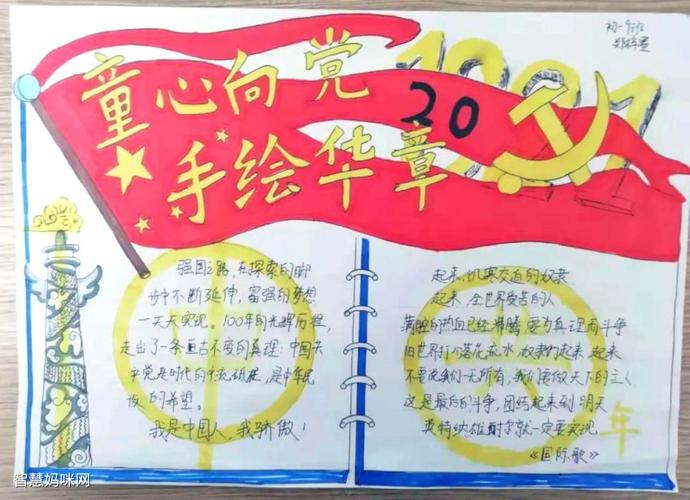 初一9班
童心向党
1921
20
手绘华章
强国之路，在探索的脚
步中不断延伸，富强的梦想
一天天实现。100年的光辉历程，
走出了一条亘古不变的真理：中国共
产党是时代的中流砥柱，是中华民
族的希望。
我是中国人，我骄傲！
起来，饥寒交迫的奴隶
起来，全世界受苦的人
满腔的热血已经沸腾 要为真理而斗争
旧世界打个落花流水，奴隶们起来 起来
不要说我们一无所有，我们要做天下的主人
这是最后的斗争，团结起来到明天
英特纳雄耐尔就一定要实现
《国际歌》
年
智慧妈咪网